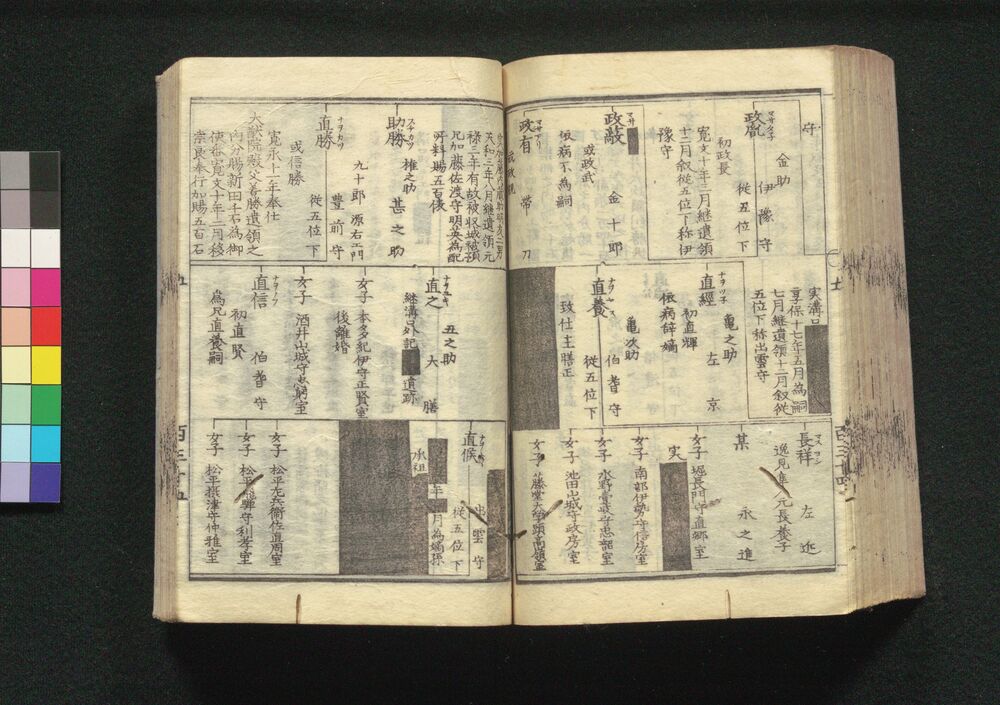 守
政胤
マサタネ
金助
伊豫守
従五位下
初政長
寛文十年三月継遺領
十二月叙従五位下称伊
豫守
政敲
金十郎
或政武
依病不為嗣
政有
マサアリ
帯刀
助勝
スケカツ
権之助
甚之助
天和三年八月継遺領元
禄三年有故被収城被預
兄加藤佐渡守明英為配
所料賜五百俵
直勝
ナヲカツ
九十郎
源右衛門
豊前守
従五位下
或信勝
寛永十一年奉仕
大猷院殿父善勝遺領之
内分賜新田千石為御
使番寛文十年二月移
奈良奉行加賜五百石
実溝口
享保十七年十五月為嗣
七月継遺領十二月叙従
五位下称出雲守
直經
ナヲツ子
亀之助
左京
初直輝
依病辞嫡
直養
亀次助
伯耆守
従五位下
致仕主膳正
直之
五之助
大膳
継溝口外記
遺跡
女子
本多紀伊守正賢室
後離婚
女子
酒井山城守忠窮室
直信
ナヲノフ
伯耆守
初直賢
為兄直養嗣
長祥
左近
逸見
八元長養子
某
永之進
女子
堀長門守直郷室
実
女子
南部伊勢守信房室
女子
水野
守忠韶室
女子
池田山城守政房室
女子
藤堂大学頭高嶷室
直侯
出雲守
従五位下
年
月為嫡孫
承祖
女子
松平左兵衛佐直周室
女子
松平飛騨守利孝室
女子
松平摂津守仲雅室
百三十四
百三十五